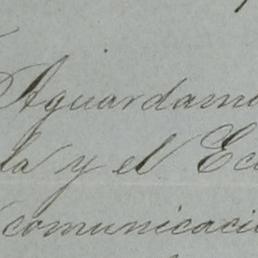 Aguardamo
da y el Ec
comunicaci